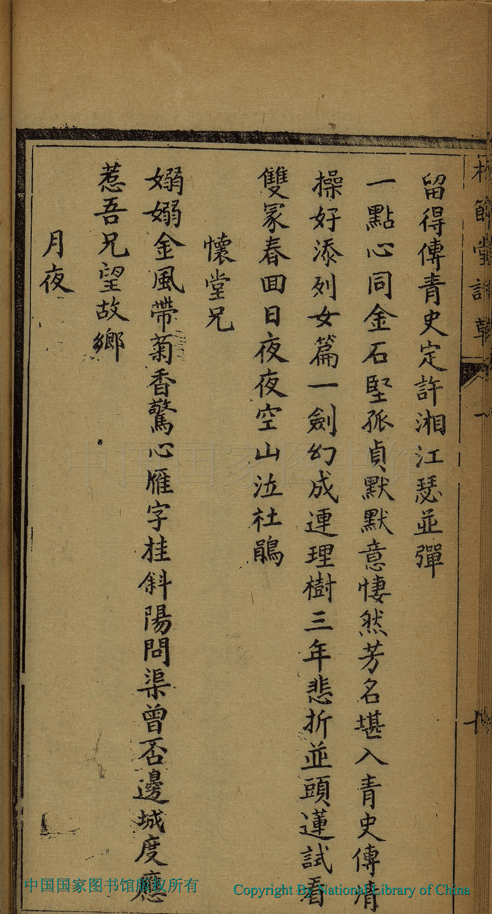 留得傳青史定許湘江瑟並彈
一點心同金石堅孤貞默默意悽然芳名堪入青史傳清
操好添列女篇一劍幻成連理樹三年悲折並頭蓮試看
雙冢春回日夜夜空山泣杜鵑
懷堂兄
嫋嫋金風帶菊香驚心雁字挂斜陽問渠曾否邊城度應
惹吾兄望故鄉
月夜
中国国家图书馆版权所有
Copyright By National Library of China